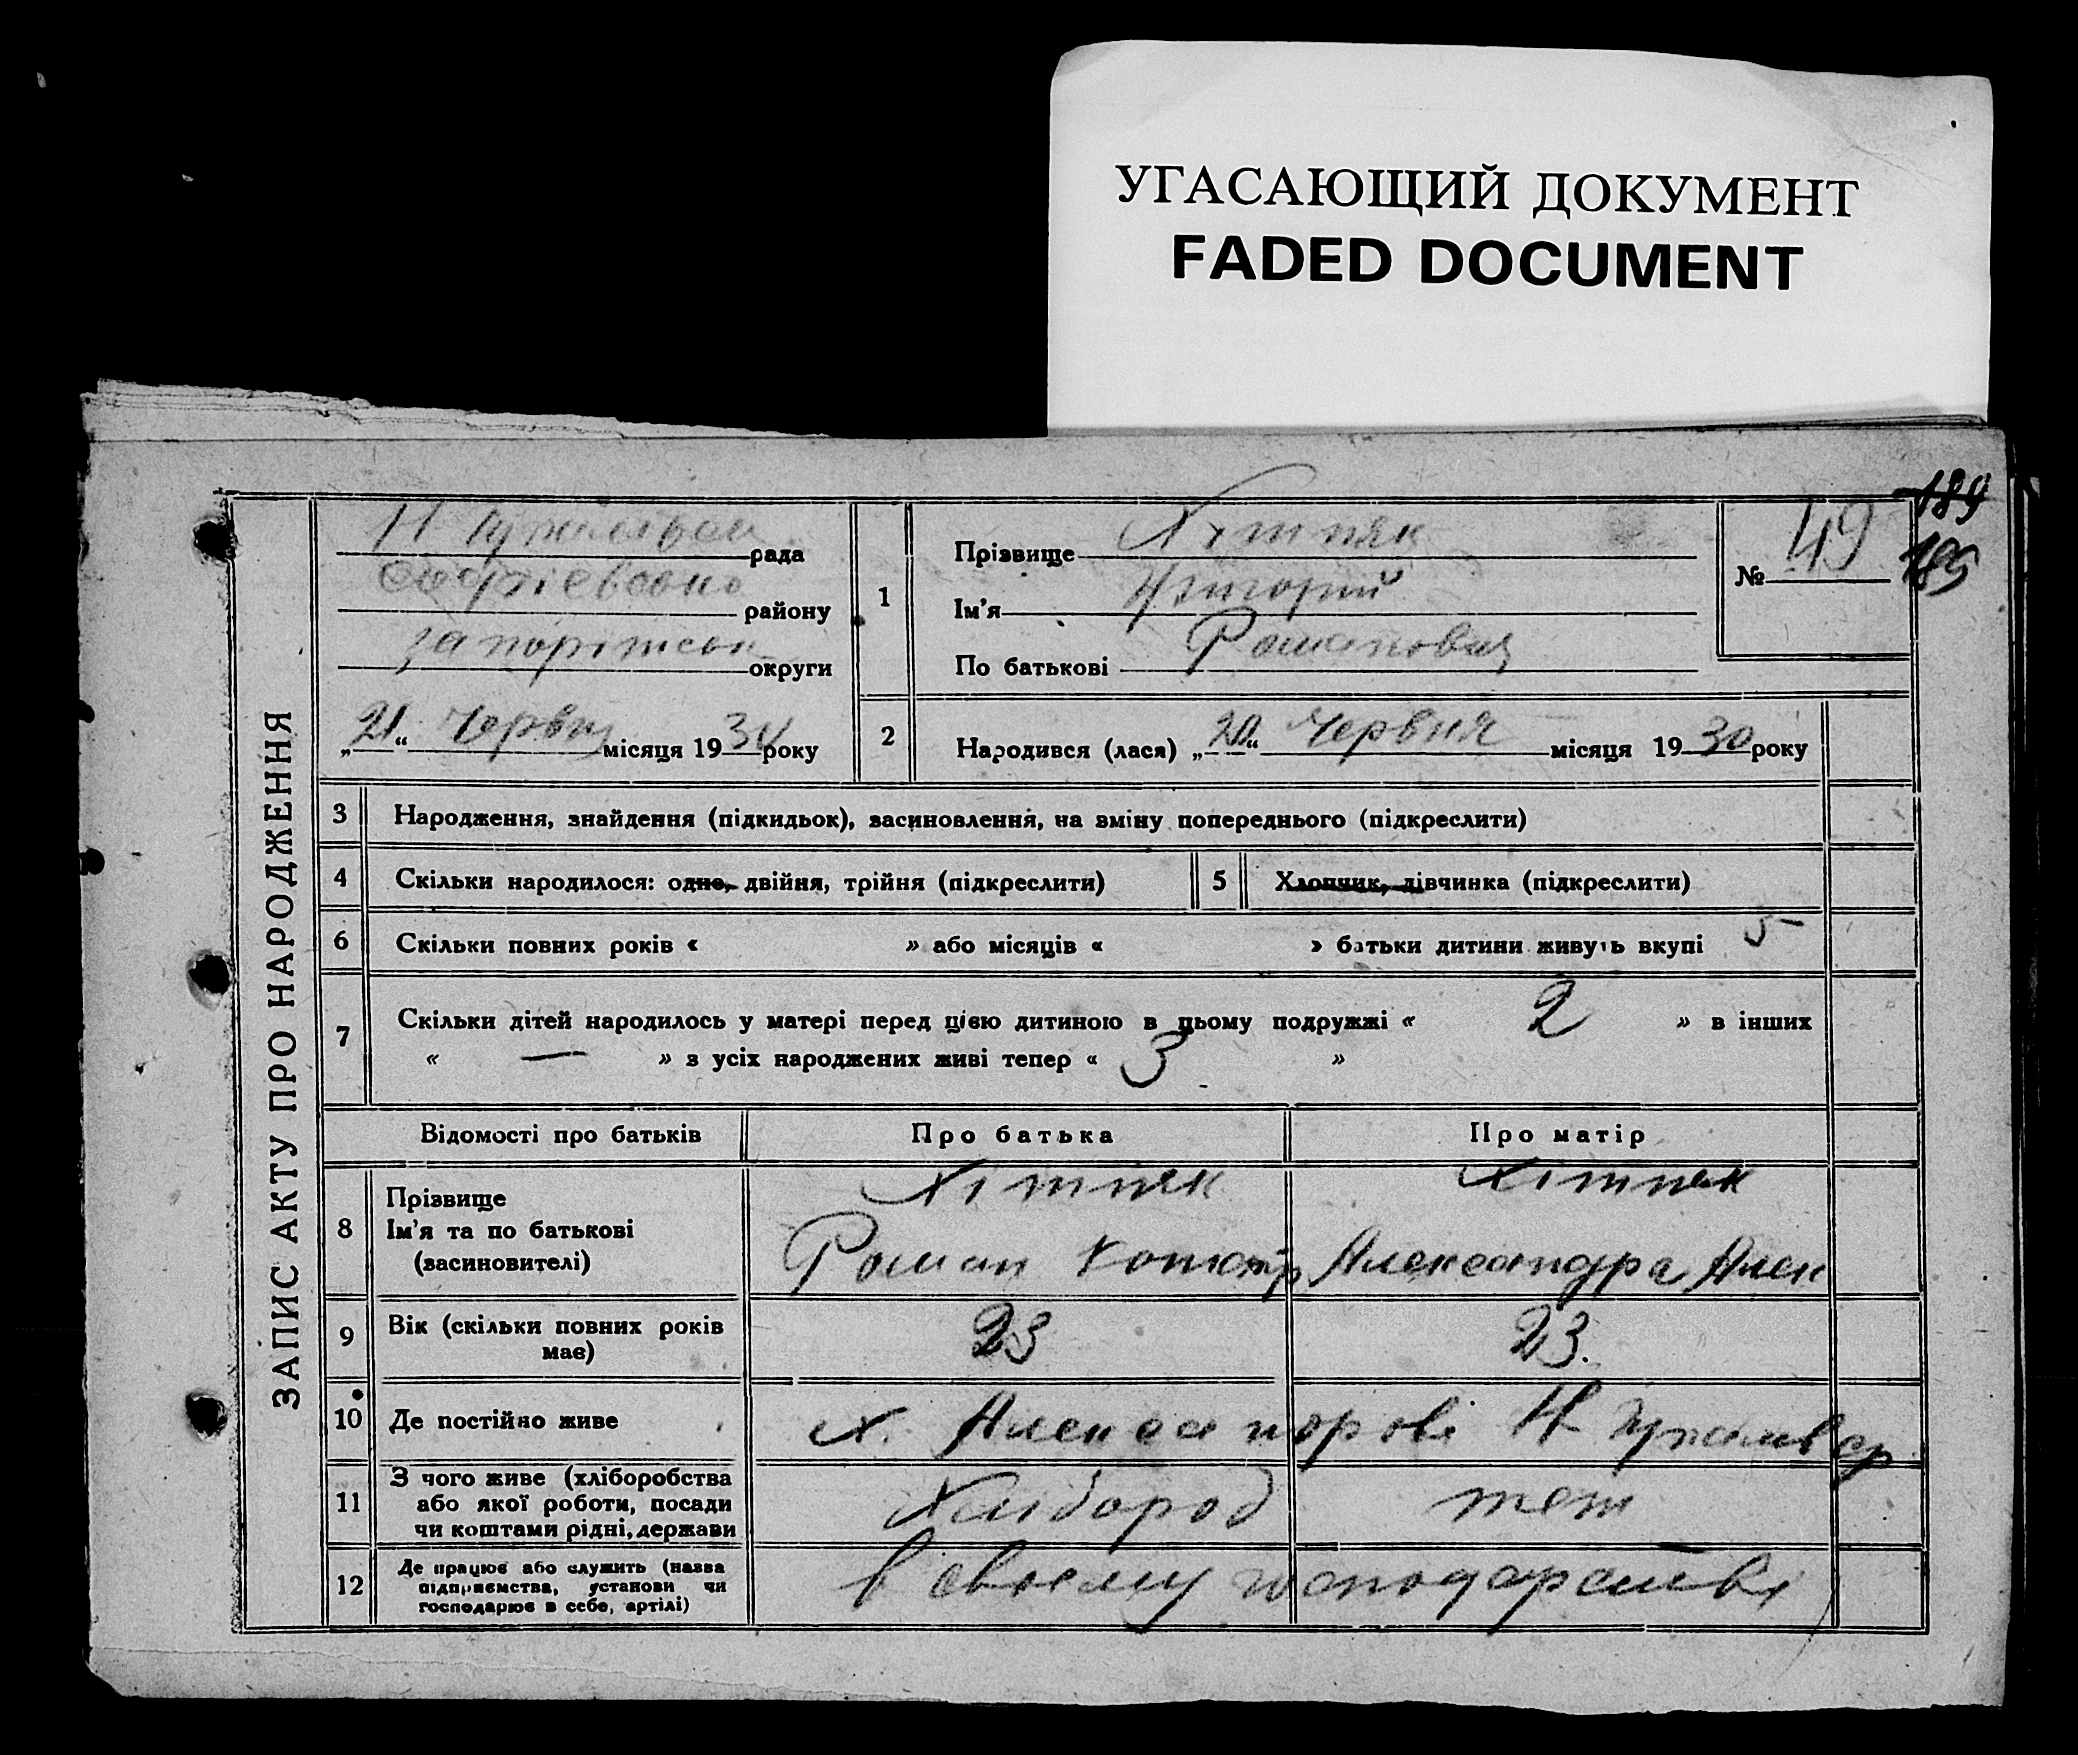 УГАСАЮЩИЙ ДОКУМЕНТ
FADED DOCUMENT
189
185
ЗАПИС АКТУ ПРО НАРОДЖЕННЯ
рада
району
округи
„21“ Червня місяця 1930 року
1
Прізвище Хітняк
Ім'я Григорий
По батькові Романович
№ 49
2
Народився (лася) „20“ Червня місяця 1930 року
3 Народження, знайдення (підкидьок), засиновлення, на зміну попереднього (підкреслити)
4 Скільки народилося: одно, двійня, трійня (підкреслити)
5 Хлопчик, дівчинка (підкреслити)
6 Скільки повних років « » або місяців « » батьки дитини живуть вкупі 5
7 Скільки дітей народилось у матері перед цією дитиною в цьому подружжі « 2 » в інших
« — » з усіх народжених живі тепер « 3 »
Відомості про батьків Про батька Про матір
8 Прізвище
Ім'я та по батькові
(засиновителі)
Хітняк
Роман
Хітняк
Александра Алек
9 Вік (скільки повних років має)
23
23.
10 Де постійно живе
х.
11 З чого живе (хліборобства
або якої роботи, посади
чи коштами рідні, держави
Хлібороб
теж
12 Де працює або служить (назва
підприємства, установи чи
господарює в себе, артілі)
в своему господарстві